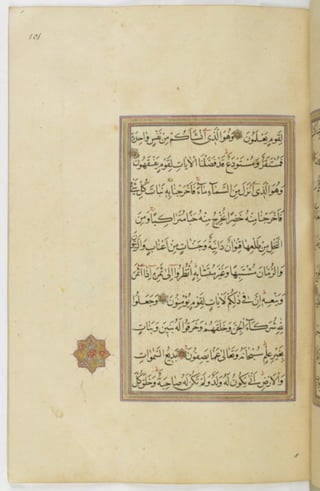 101
لِقَوْمٍ يَعْلَمُونَ وَهُوَ الَّذِي أَنْشَأَكُمْ مِنْ نَفْسٍ وَاحِدَةٍ
فَمُسْتَقَرٌّ وَمُسْتَوْدَعٌ قَدْ فَصَّلْنَا الْآيَاتِ لِقَوْمٍ يَفْقَهُونَ
وَهُوَ الَّذِي أَنْزَلَ مِنَ السَّمَاءِ مَاءً فَأَخْرَجْنَا بِهِ نَبَاتَ كُلِّ شَيْءٍ
فَأَخْرَجْنَا مِنْهُ خَضِرًا نُخْرِجُ مِنْهُ حَبًّا مُتَرَاكِبًا وَمِنَ
النَّخْلِ مِنْ طَلْعِهَا قِنْوَانٌ دَانِيَةٌ وَجَنَّاتٍ مِنْ أَعْنَابٍ وَالزَّيْتُونَ
وَالرُّمَّانَ مُشْتَبِهًا وَغَيْرَ مُتَشَابِهٍ انْظُرُوا إِلَى ثَمَرِهِ إِذَا أَثْمَرَ
وَيَنْعِهِ إِنَّ فِي ذَلِكُمْ لَآيَاتٍ لِقَوْمٍ يُؤْمِنُونَ وَجَعَلُوا
لِلَّهِ شُرَكَاءَ الْجِنَّ وَخَلَقَهُمْ وَخَرَقُوا لَهُ بَنِينَ وَبَنَاتٍ
بِغَيْرِ عِلْمٍ سُبْحَانَهُ وَتَعَالَى عَمَّا يَصِفُونَ بَدِيعُ السَّمَوَاتِ
وَالْأَرْضِ أَنَّى يَكُونُ لَهُ وَلَدٌ وَلَمْ تَكُنْ لَهُ صَاحِبَةٌ وَخَلَقَ كُلَّ